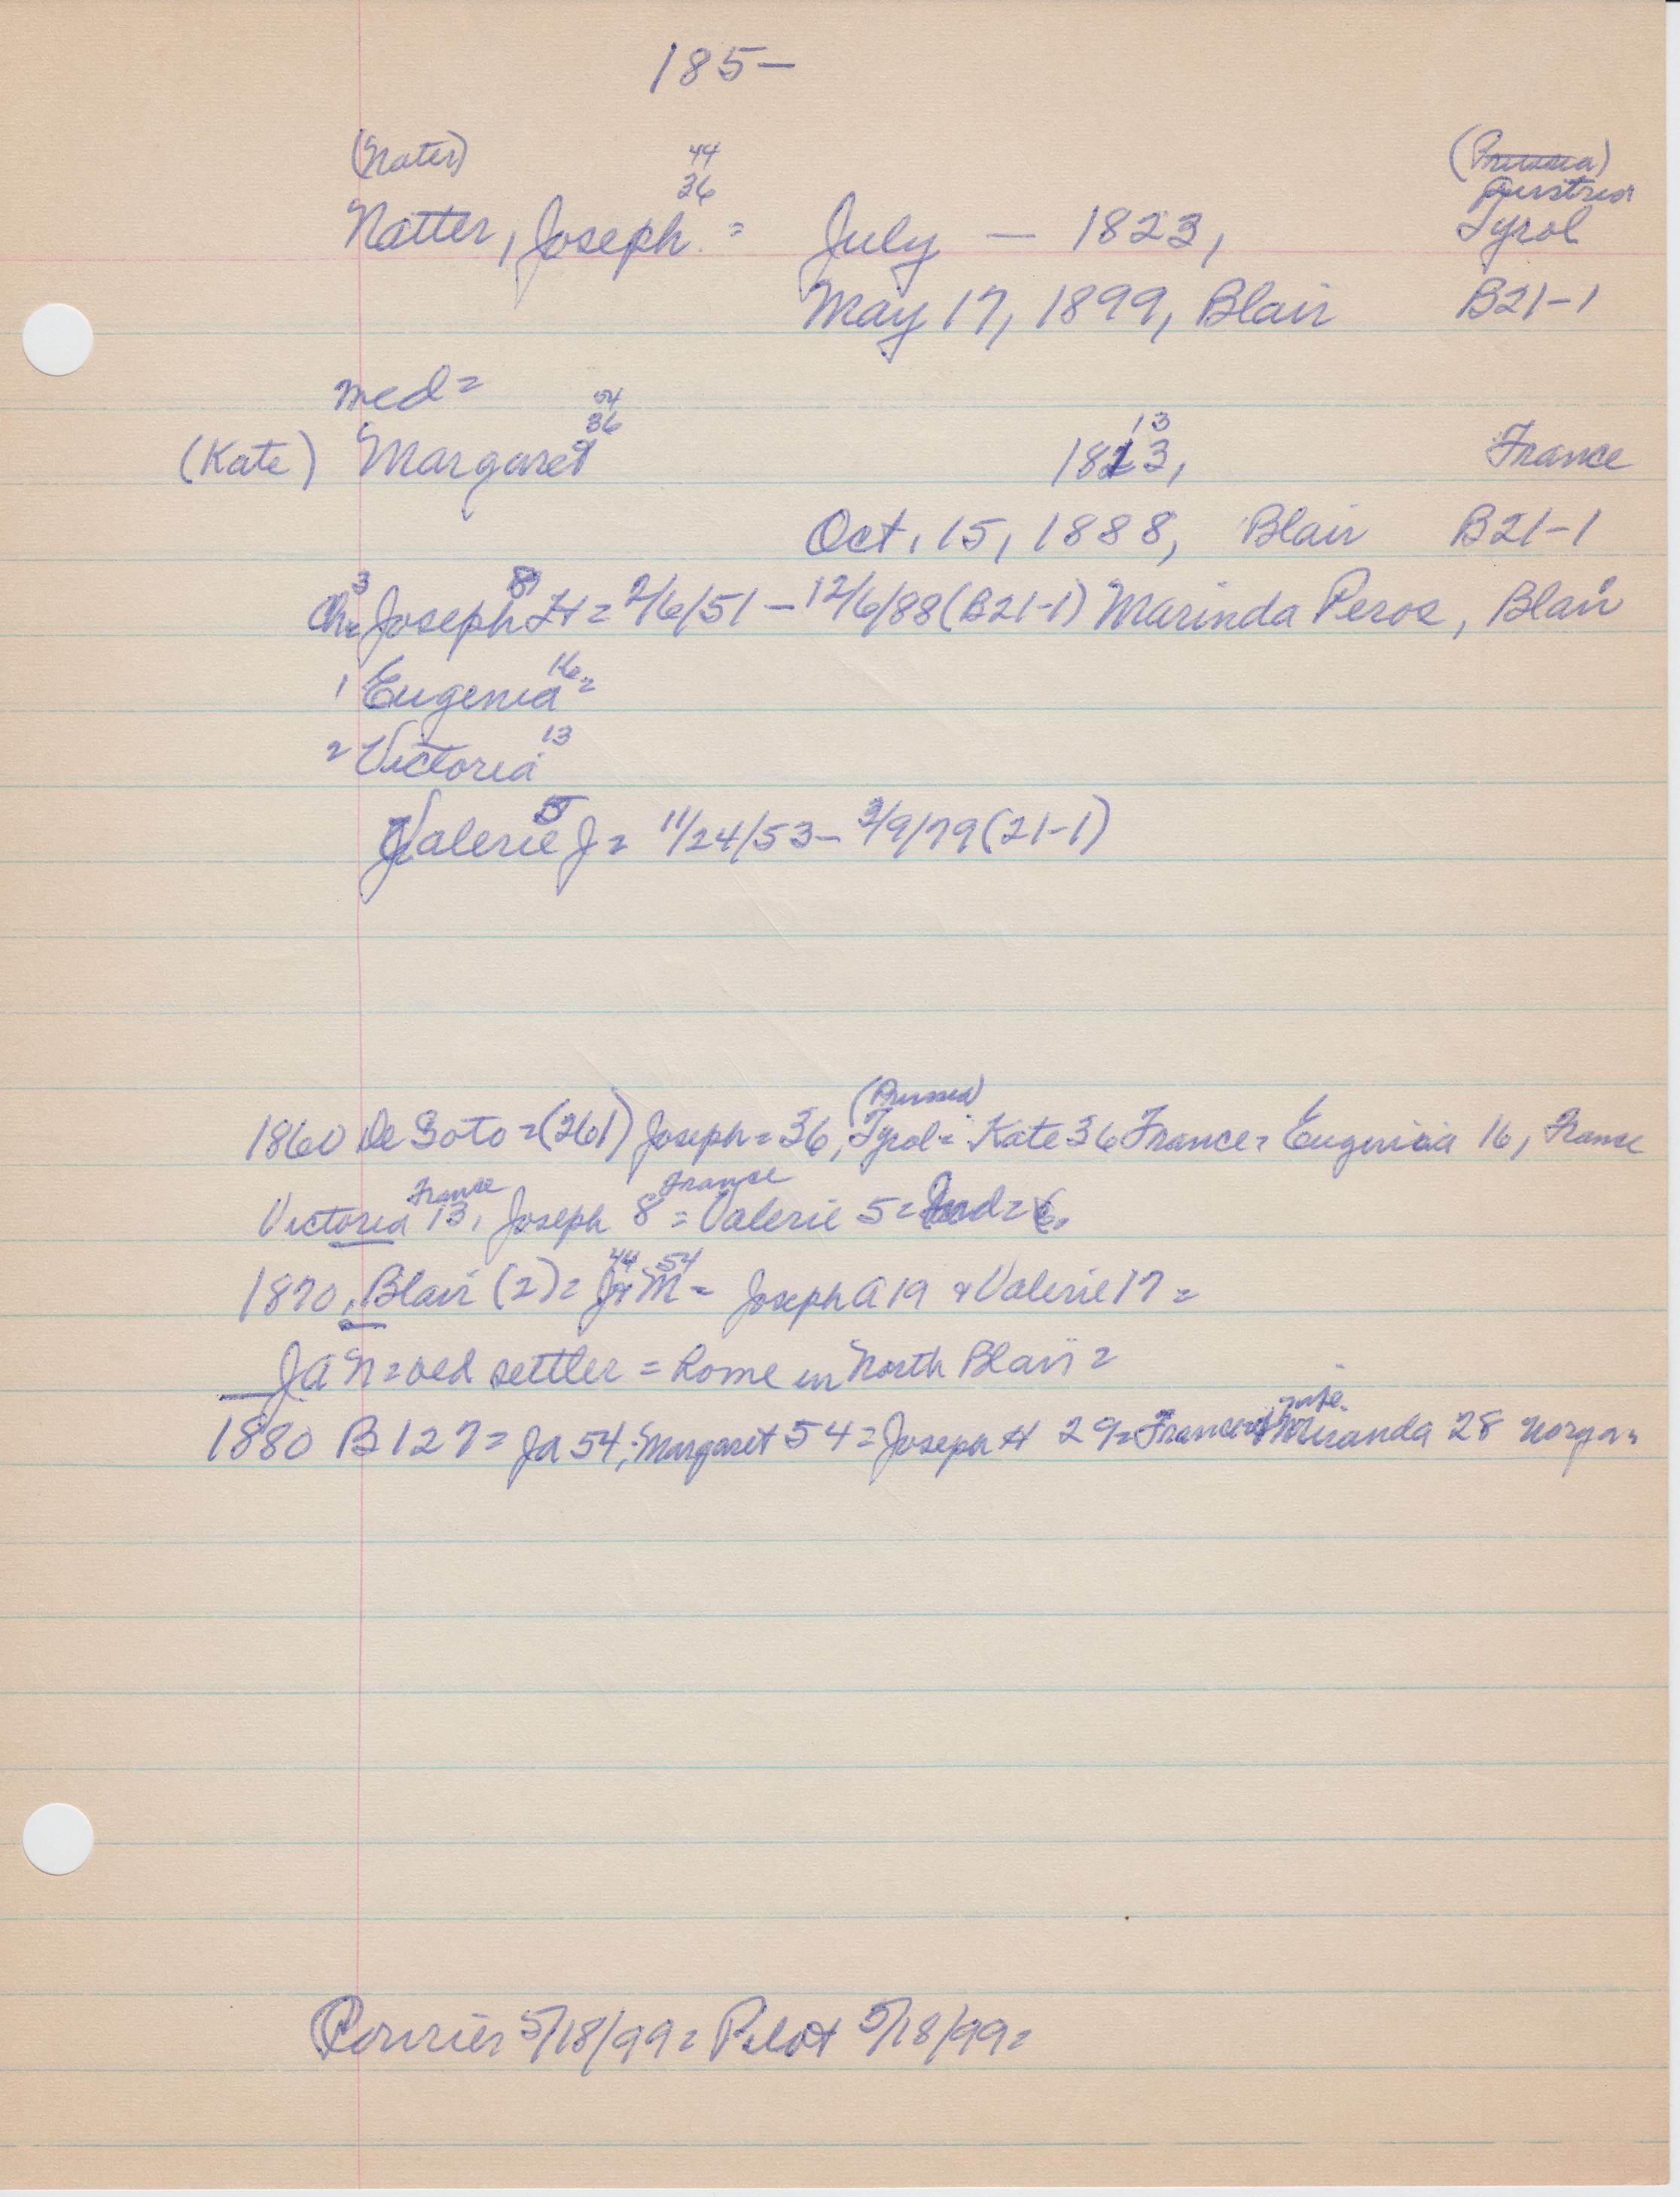 185-
(Nater) 44 (Prussia)
36 Austria
Natter, Joseph = July — 1823, Tyrol
May 17, 1899, Blair B21-1
med = 54
36 13
(Kate) Margaret 1823, France
Oct. 15, 1888, Blair B21-1
3 8
Ch= Joseph H = 2/6/51 - 12/6/88 (B21-1) Marinda Peros, Blair
1 Eugenia 16 =
2 Victoria 13
Valerie J = 5 11/24/53 - 3/9/79 (21-1)
(Prussia)
1860 De Soto = (261) Joseph = 36, Tyrol = Kate 36 France = Eugenia 16, France
France France
Victoria 13, Joseph 8 = Valerie 5 = Ind =
44 54
1870, Blair (2) = J & M = Joseph A 19 & Valerie 17 =
J A N = old settler = home in North Blair =
wife
1880 B 127 = Ja 54, Margaret 54 = Joseph H 29 = France Miranda 28
Courier 5/18/99 = Pilot 5/18/99 =